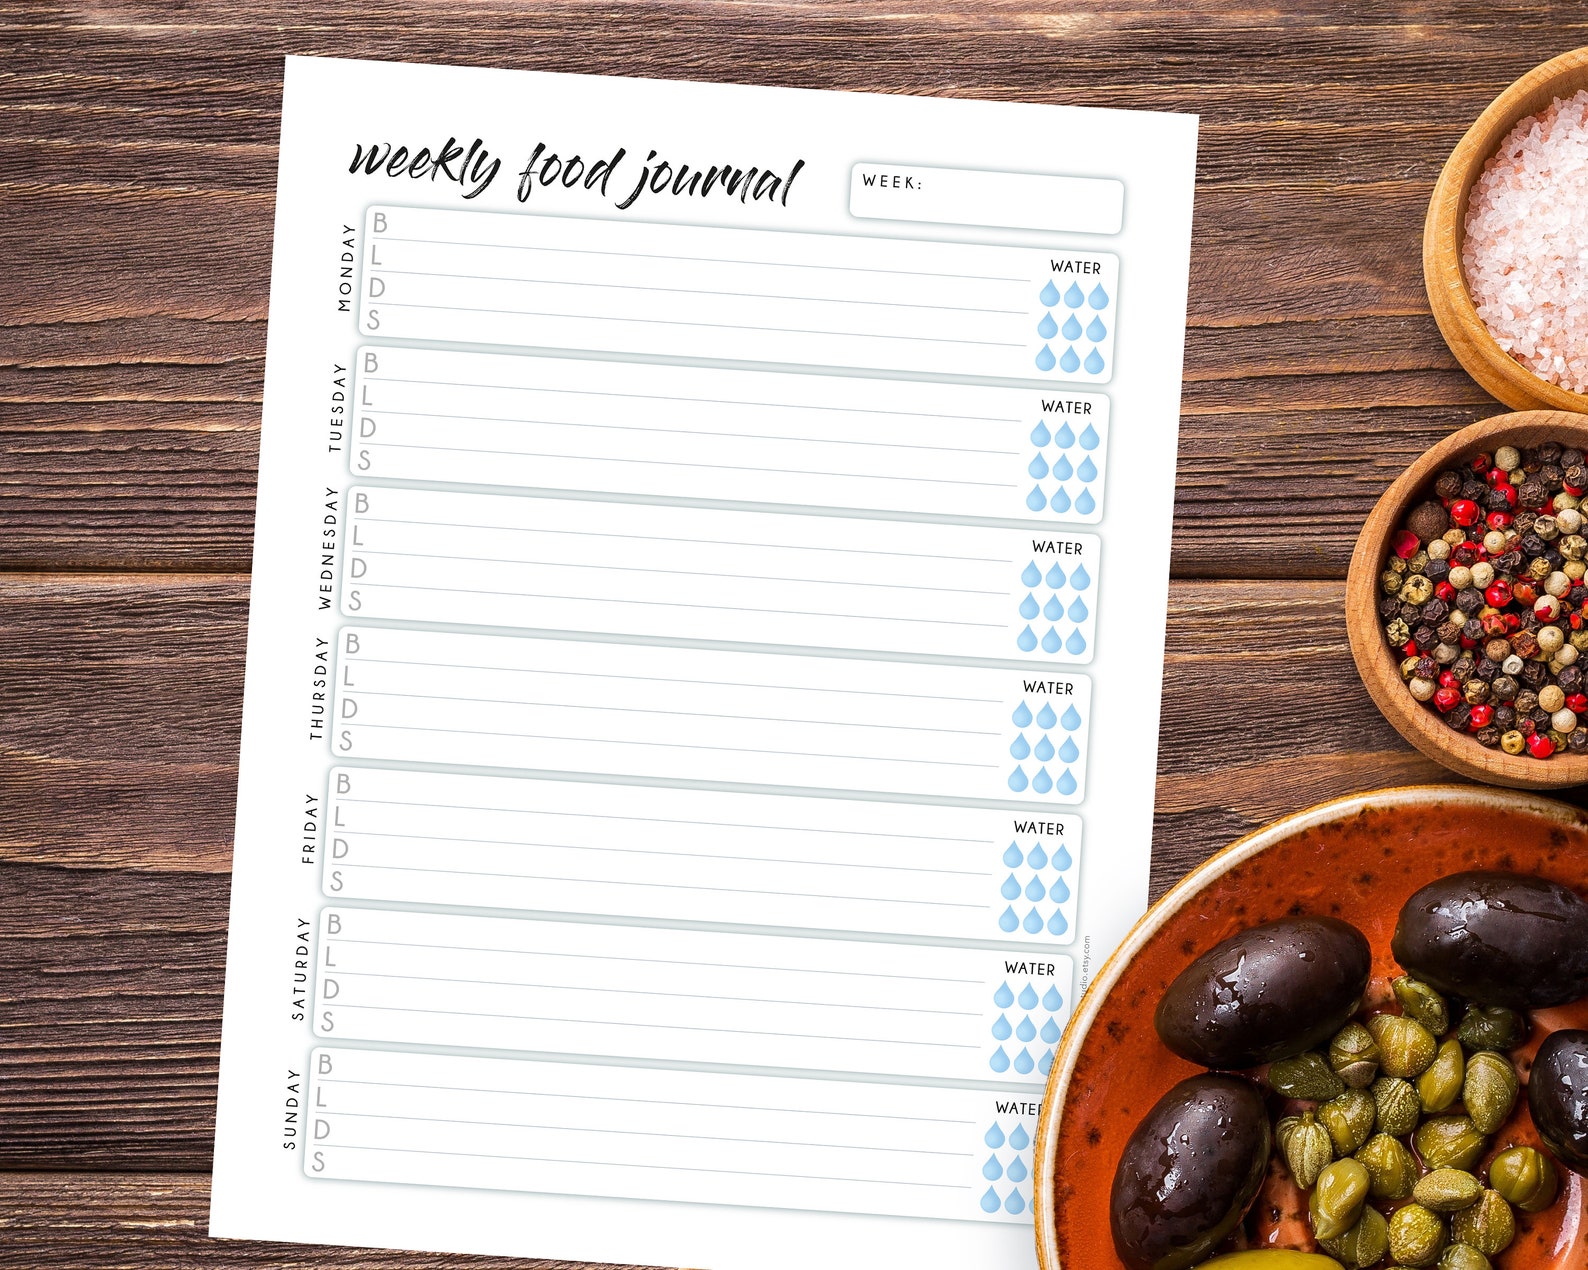 weekly food journal
WEEK:
MONDAY
B
L
D
S
WATER
TUESDAY
B
L
D
S
WATER
WEDNESDAY
B
L
D
S
WATER
THURSDAY
B
L
D
S
WATER
FRIDAY
B
L
D
S
WATER
SATURDAY
B
L
D
S
WATER
SUNDAY
B
L
D
S
WATER
.etsy.com